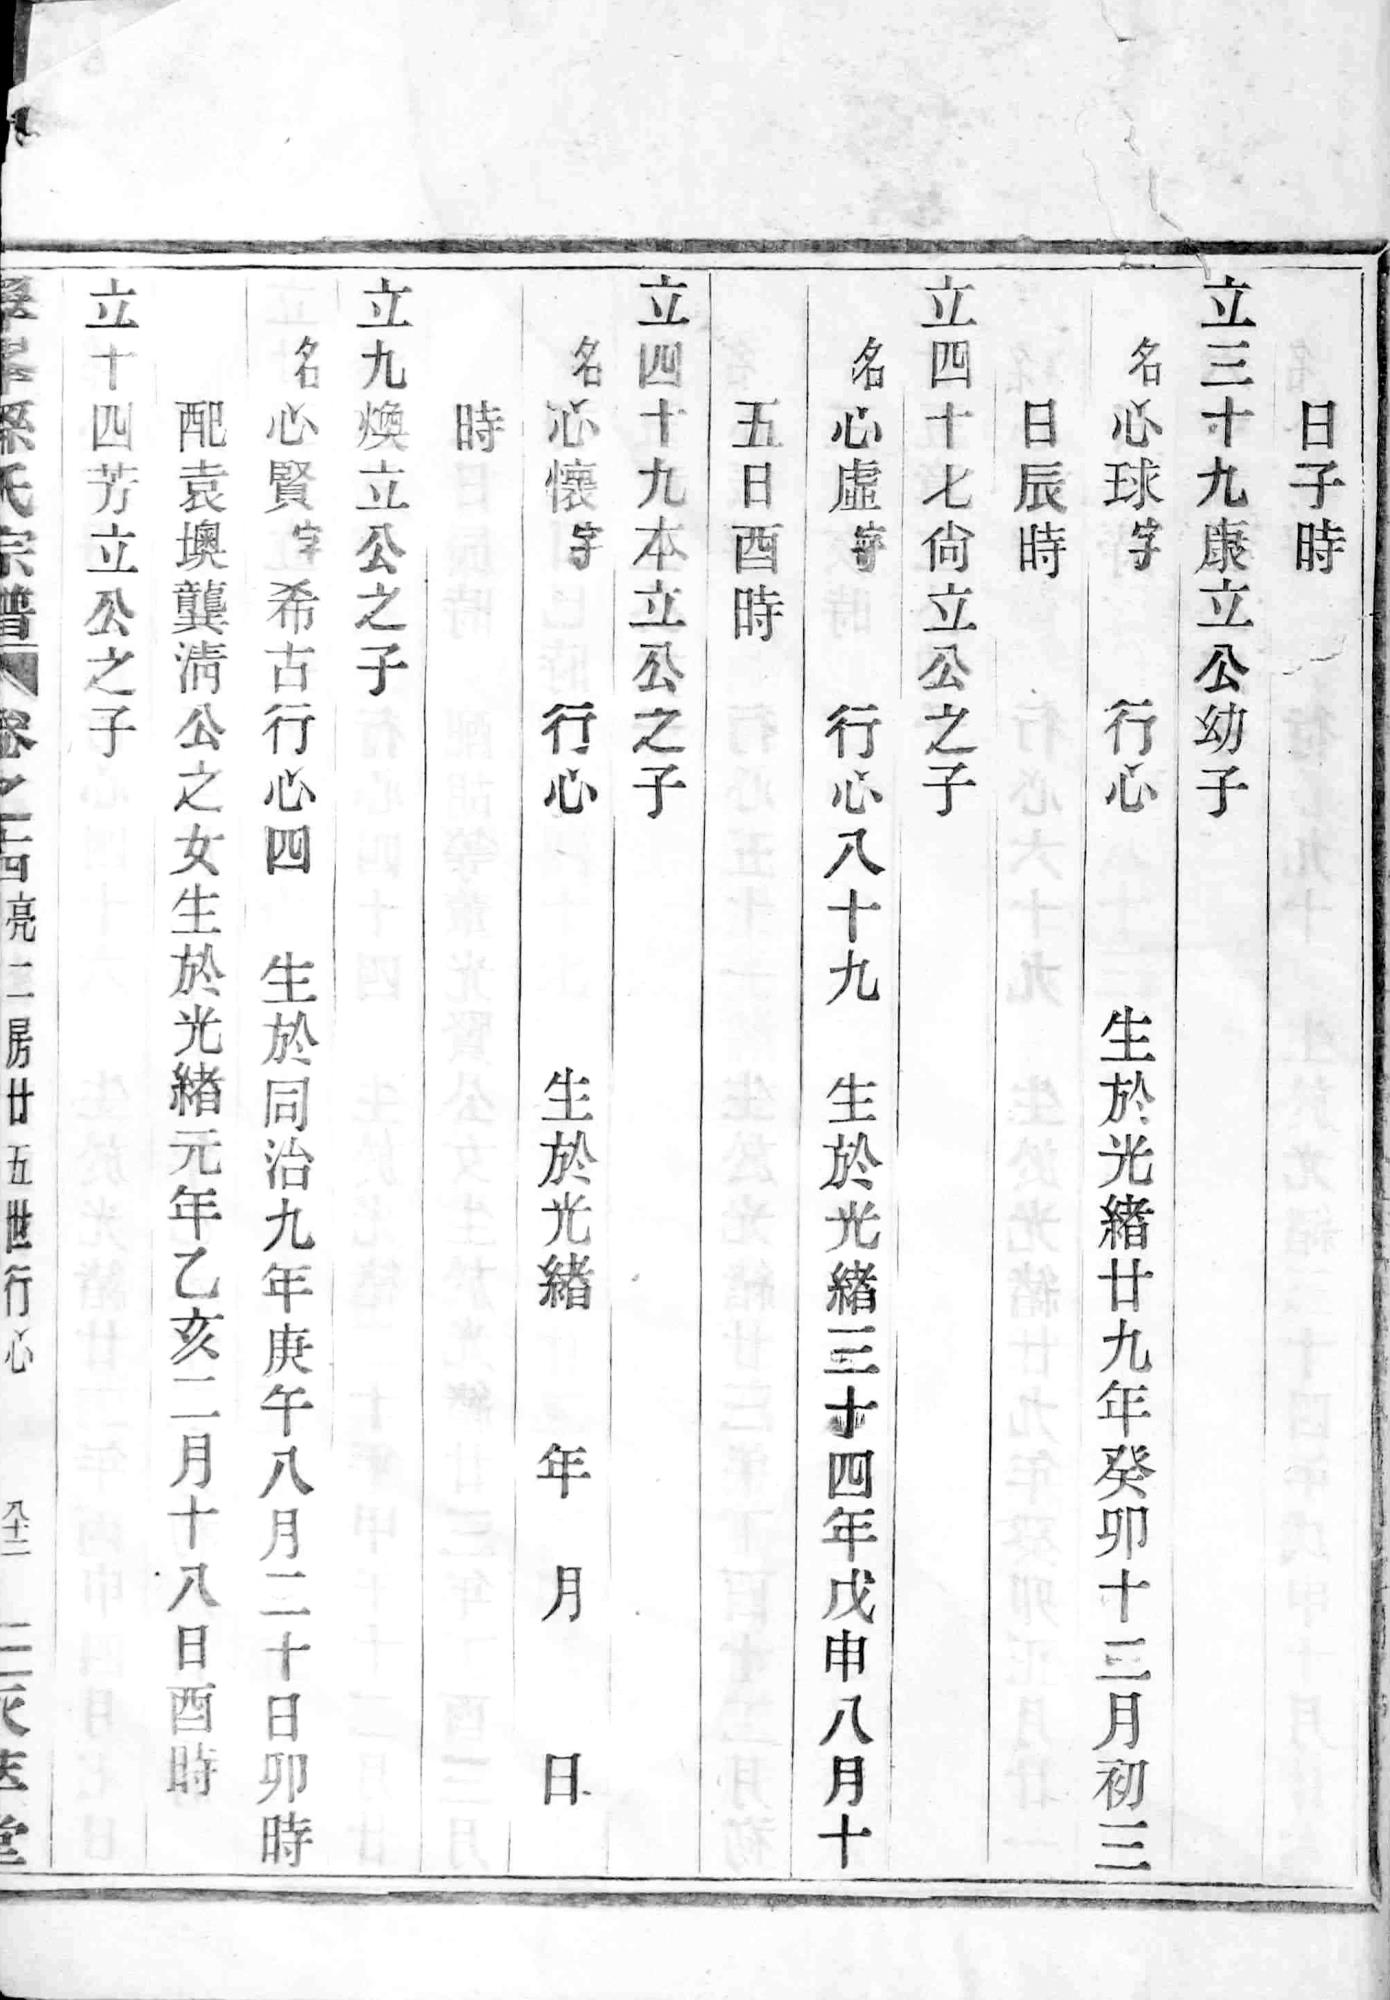 日子時
立三十九康立公幼子
名心球字 行心 生於光緒廿九年癸卯十三月初三
日辰時
立四十七尙立公之子
名心虛字 行心八十九 生於光緒三十四年戊申八月十
五日酉時
立四十九本立公之子
名心懷字 行心 生於光緒 年 月 日
時
立九煥立公之子
名心賢字希古行心四 生於同治九年庚午八月二十日卯時
配袁墺龔淸公之女生於光緒元年乙亥二月十八日酉時
立十四芳立公之子
孫氏宗譜 卷之 亮二房廿五世行心 八十二 堂